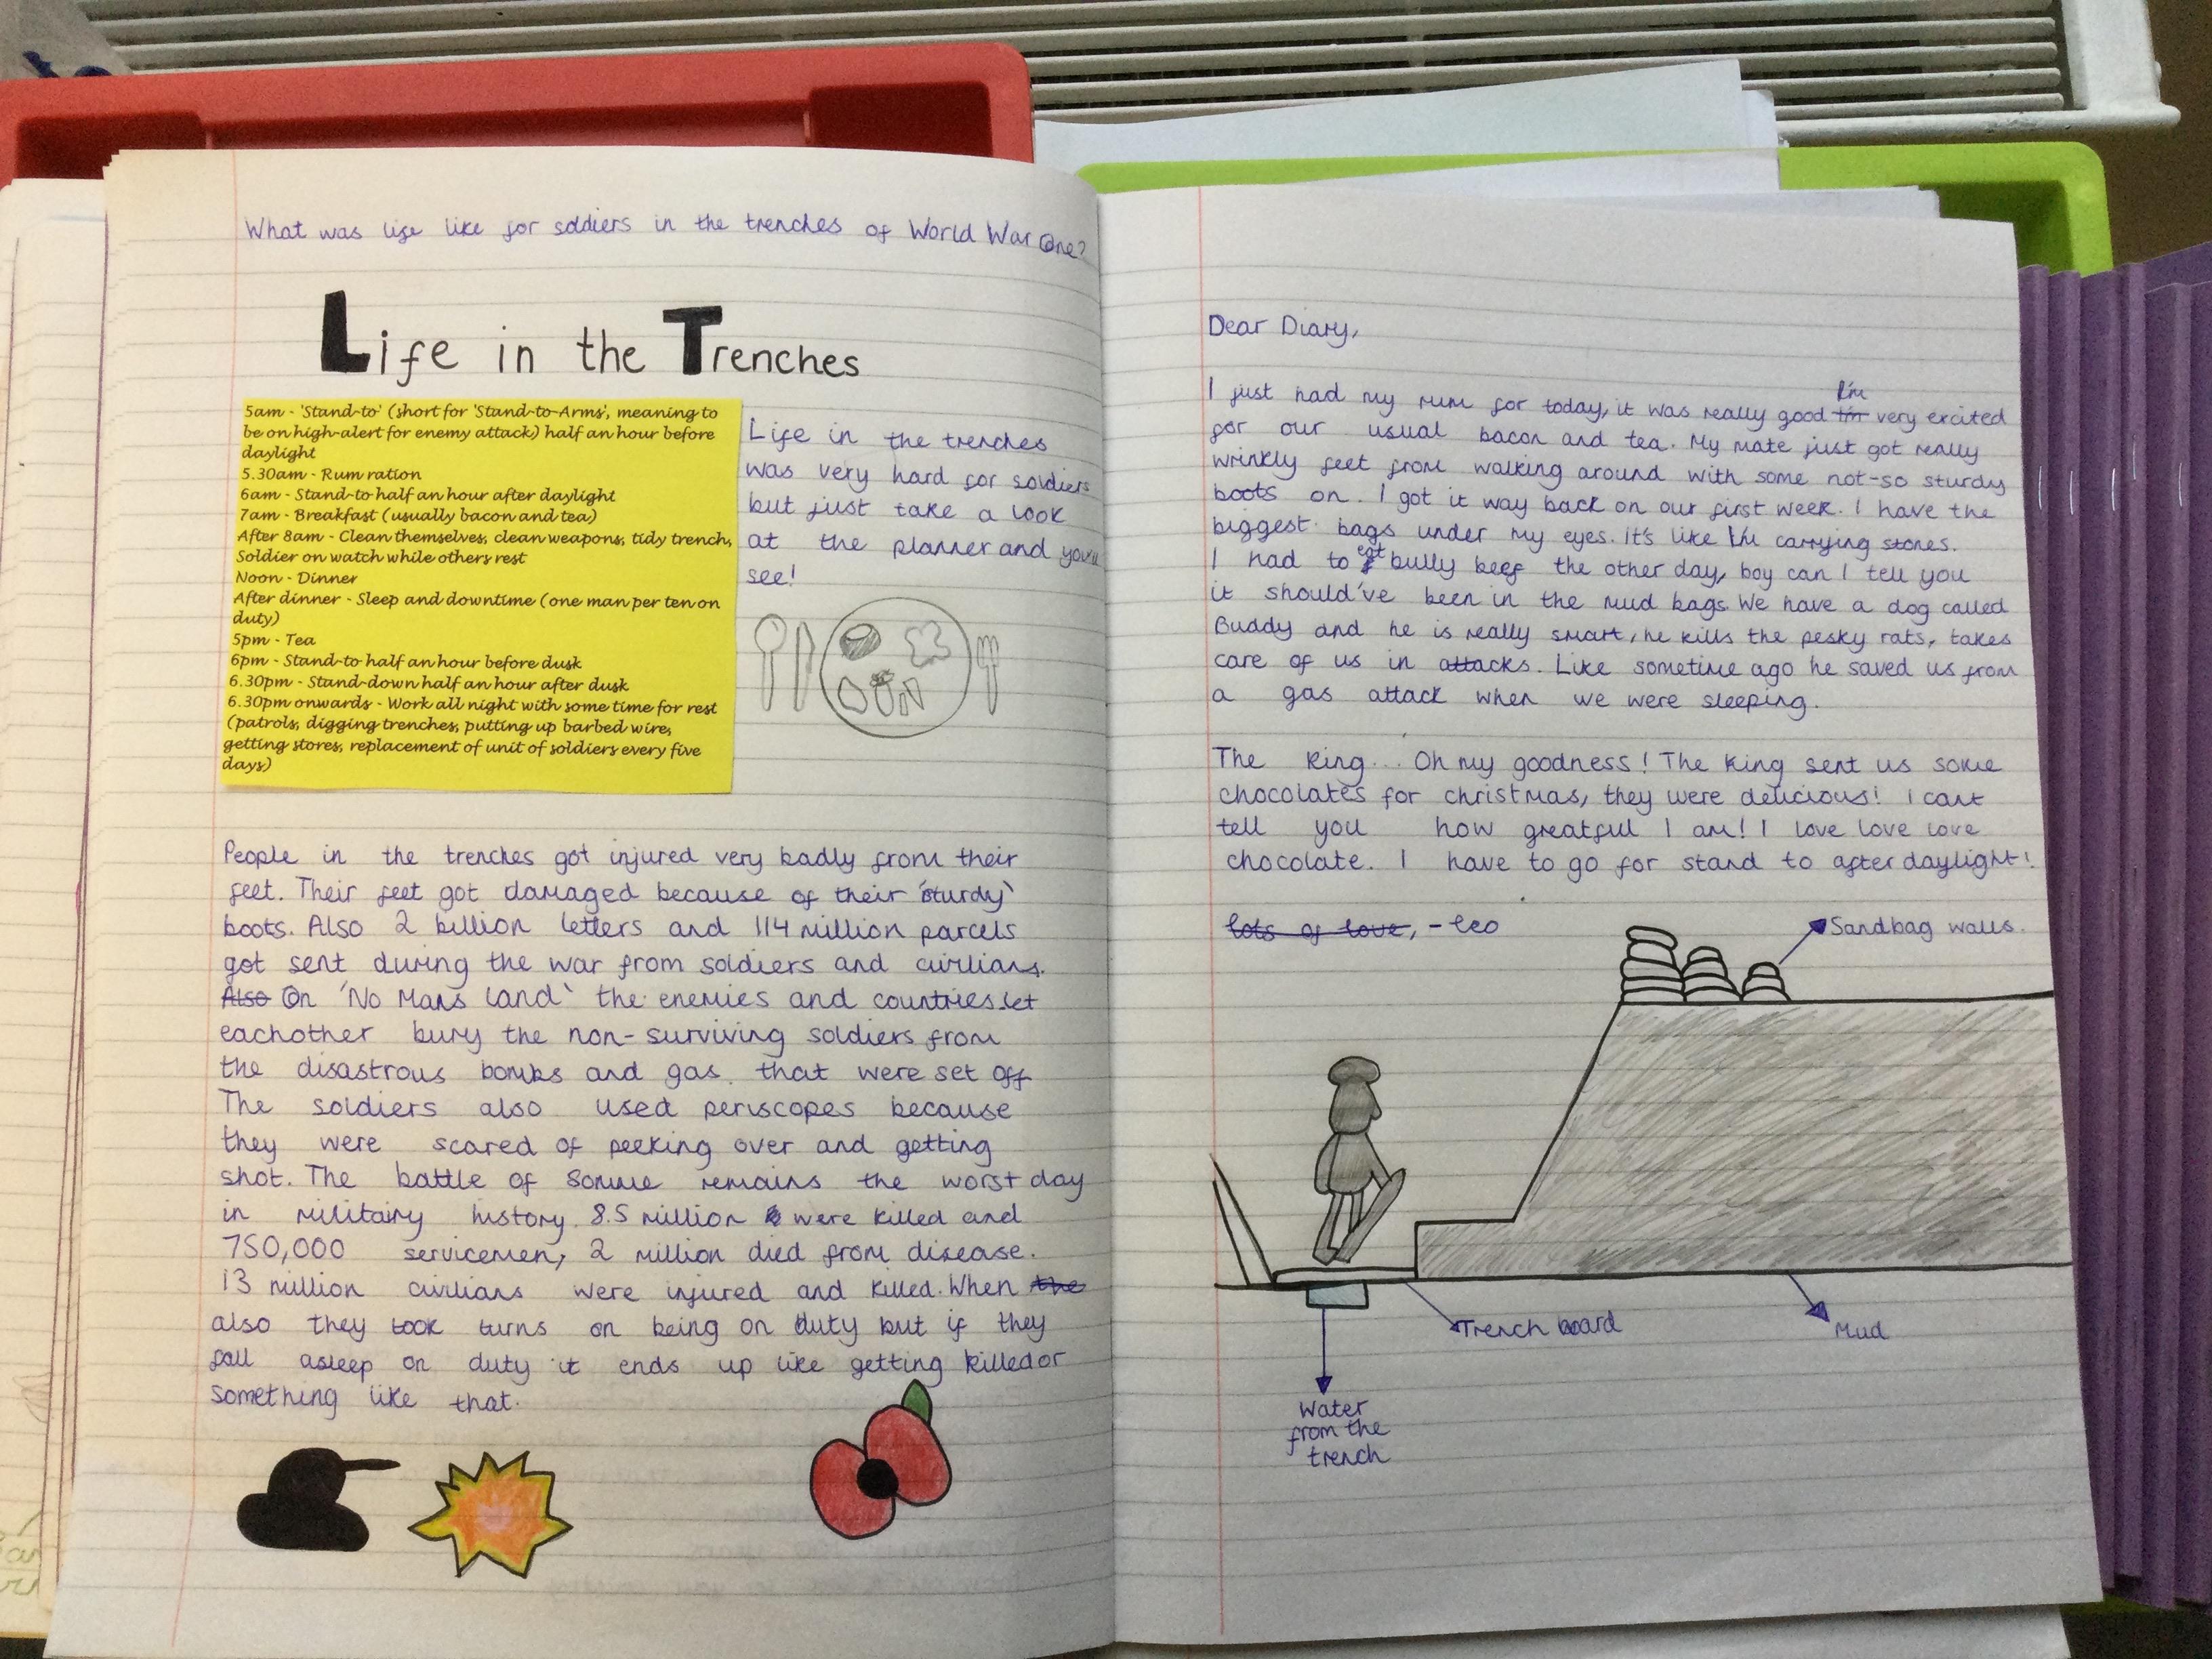 What was life like for soldiers in the trenches of World War One?
Life in the Trenches
5am - 'Stand-to' (short for 'Stand-to-Arms', meaning to
be on high-alert for enemy attack) half an hour before
daylight
5.30am - Rum ration
6am - Stand-to half an hour after daylight
7am - Breakfast (usually bacon and tea)
After 8am - Clean themselves, clean weapons, tidy trench,
Soldier on watch while others rest
Noon - Dinner
After dinner - Sleep and downtime (one man per ten on
duty)
5pm - Tea
6pm - Stand-to half an hour before dusk
6.30pm - Stand-down half an hour after dusk
6.30pm onwards - Work all night with some time for rest
(patrols, digging trenches, putting up barbed wire,
getting stores, replacement of unit of soldiers every five
days)
Life in the trenches
was very hard for soldiers
but just take a look
at the planner and you'll
see!
People in the trenches got injured very badly from their
feet. Their feet got damaged because of their 'sturdy'
boots. Also 2 billion letters and 114 million parcels
got sent during the war from soldiers and civilians.
Also On 'No Mans Land' the enemies and countries let
eachother bury the non-surviving soldiers from
the disastrous bombs and gas that were set off
The soldiers also used periscopes because
they were scared of peeking over and getting
shot. The battle of Somme remains the worst day
in militairy history. 8.5 million were killed and
750,000 servicemen, 2 million died from disease.
13 million civilians were injured and killed. When the
also they took turns on being on duty but if they
fall asleep on duty it ends up like getting killed or
something like that.
Dear Diary,
I'm
I just had my rum for today, it was really good I'm very excited
for our usual bacon and tea. My mate just got really
wrinkly feet from walking around with some not-so sturdy
boots on. I got it way back on our first week. I have the
biggest bags under my eyes. It's like I'm carrying stones.
I had to eat bully beef the other day, boy can I tell you
it should've been in the mud bags. We have a dog called
Buddy and he is really smart, he kills the pesky rats, takes
care of us in attacks. Like sometime ago he saved us from
a gas attack when we were sleeping.
The King... Oh my goodness! The King sent us some
chocolates for christmas, they were delicious! I cant
tell you how greatful I am! I love love love
chocolate. I have to go for stand to after daylight!
lots of love, - Leo
Sandbag walls.
Trench board
Mud
Water
from the
trench